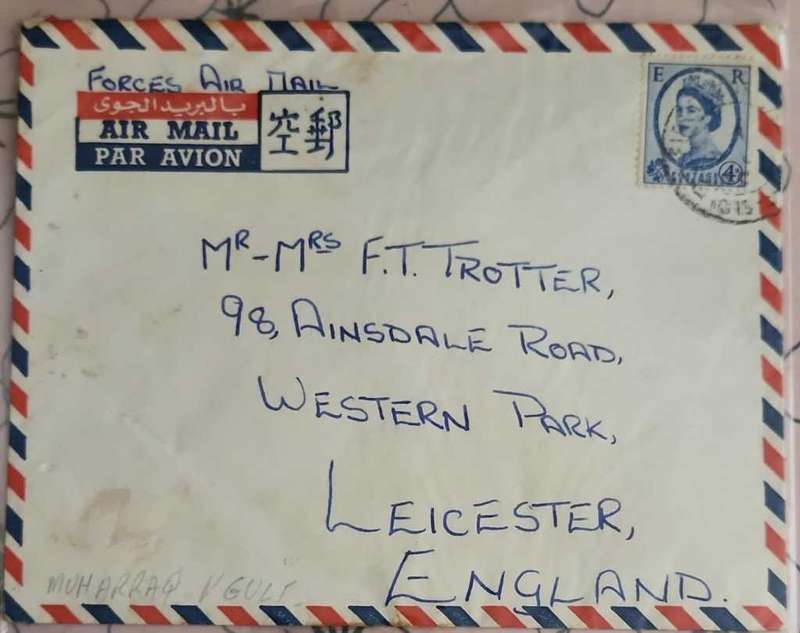 FORCES AIR MAIL
بالبريد الجوى
AIR MAIL
PAR AVION
空郵
E R
4
MR-MRS F.T. TROTTER,
98, AINSDALE ROAD,
WESTERN PARK,
LEICESTER,
ENGLAND.
MUHARRAQ